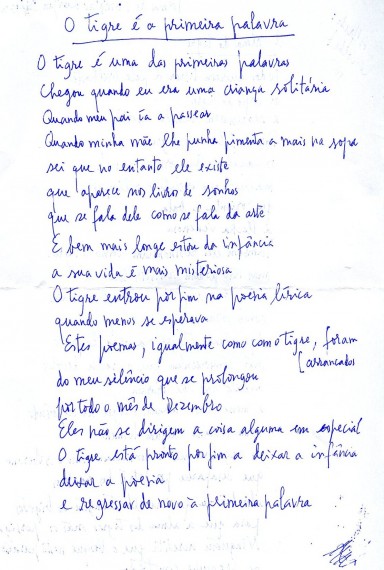 O tigre é a primeira palavra
O tigre é uma das primeiras palavras
Chegou quando eu era uma criança solitária
Quando meu pai ia a passear
Quando minha mãe lhe punha pimenta a mais na sopa
sei que no entanto ele existe
que aparece nos livro de sonhos
que se fala dele como se fala da arte
E bem mais longe estou da infância
a sua vida é mais misteriosa
O tigre entrou por fim na poesia lírica
quando menos se esperava
Estes poemas, igualmente como com o tigre, foram
[arrancados
do meu silêncio que se prolongou
por todo o mês de Dezembro
Eles não se dirigem a coisa alguma em especial
O tigre está pronto por fim a deixar a infância
deixar a poesia
e regressar de novo à primeira palavra